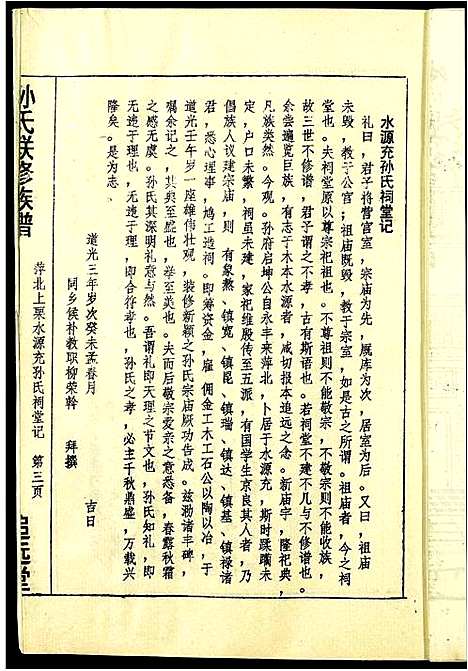 水源充孙氏祠堂记
礼曰，君子将营宫室，宗庙为先，厩库为次，居室为后。又曰，祖庙
未毁，教于公宫；祖庙既毁，教于宗室，如是古之所谓。祖庙者，今之祠
堂也。夫祠堂原以尊宗祀祖也。不尊祖则不能敬宗，不敬宗则不能收族，
故三世不修谱，君子谓之不孝，古有斯语也。若祠堂不建不几与不修谱也。
余尝遍览巨族，有志于木本水源者，咸切报本追远之念。新庙宇，隆祀典，
凡族类然。今观。孙府启坤公自永丰来萍北，卜居于水源充，斯时蹂躏未
久，户口未繁，祠虽未建，家祀维殷传至五派，有国学生京良其人者，乃
倡族人议建宗庙，则有象熬、镇宽、镇昆、镇瑞、镇达、镇基、镇禄诸
君，悉心理事，鸠工造祠。即筹资金，雇佣金工木工石公以陶以冶，于
道光壬午岁一座雄伟壮观，装修新颖之孙氏宗庙厥功告成。兹泐诸丰碑，
嘱余记之，其矣至盛也，举至美也。夫而后敬宗爱亲之意悉备，春露秋霜
之感无虞。孙氏其深明礼意与然。吾谓礼即天理之节文也，孙氏知礼，即
无违于理也，无违于理，即合符孝也，孙氏之孝，必主千秋鼎盛，万载兴
隆矣。是为志
道光三年岁次癸未孟春月 吉日
同乡侯补教职柳荣斡 拜撰
萍北上栗水源充孙氏祠堂记 第三页
孙氏联修族谱
追远堂